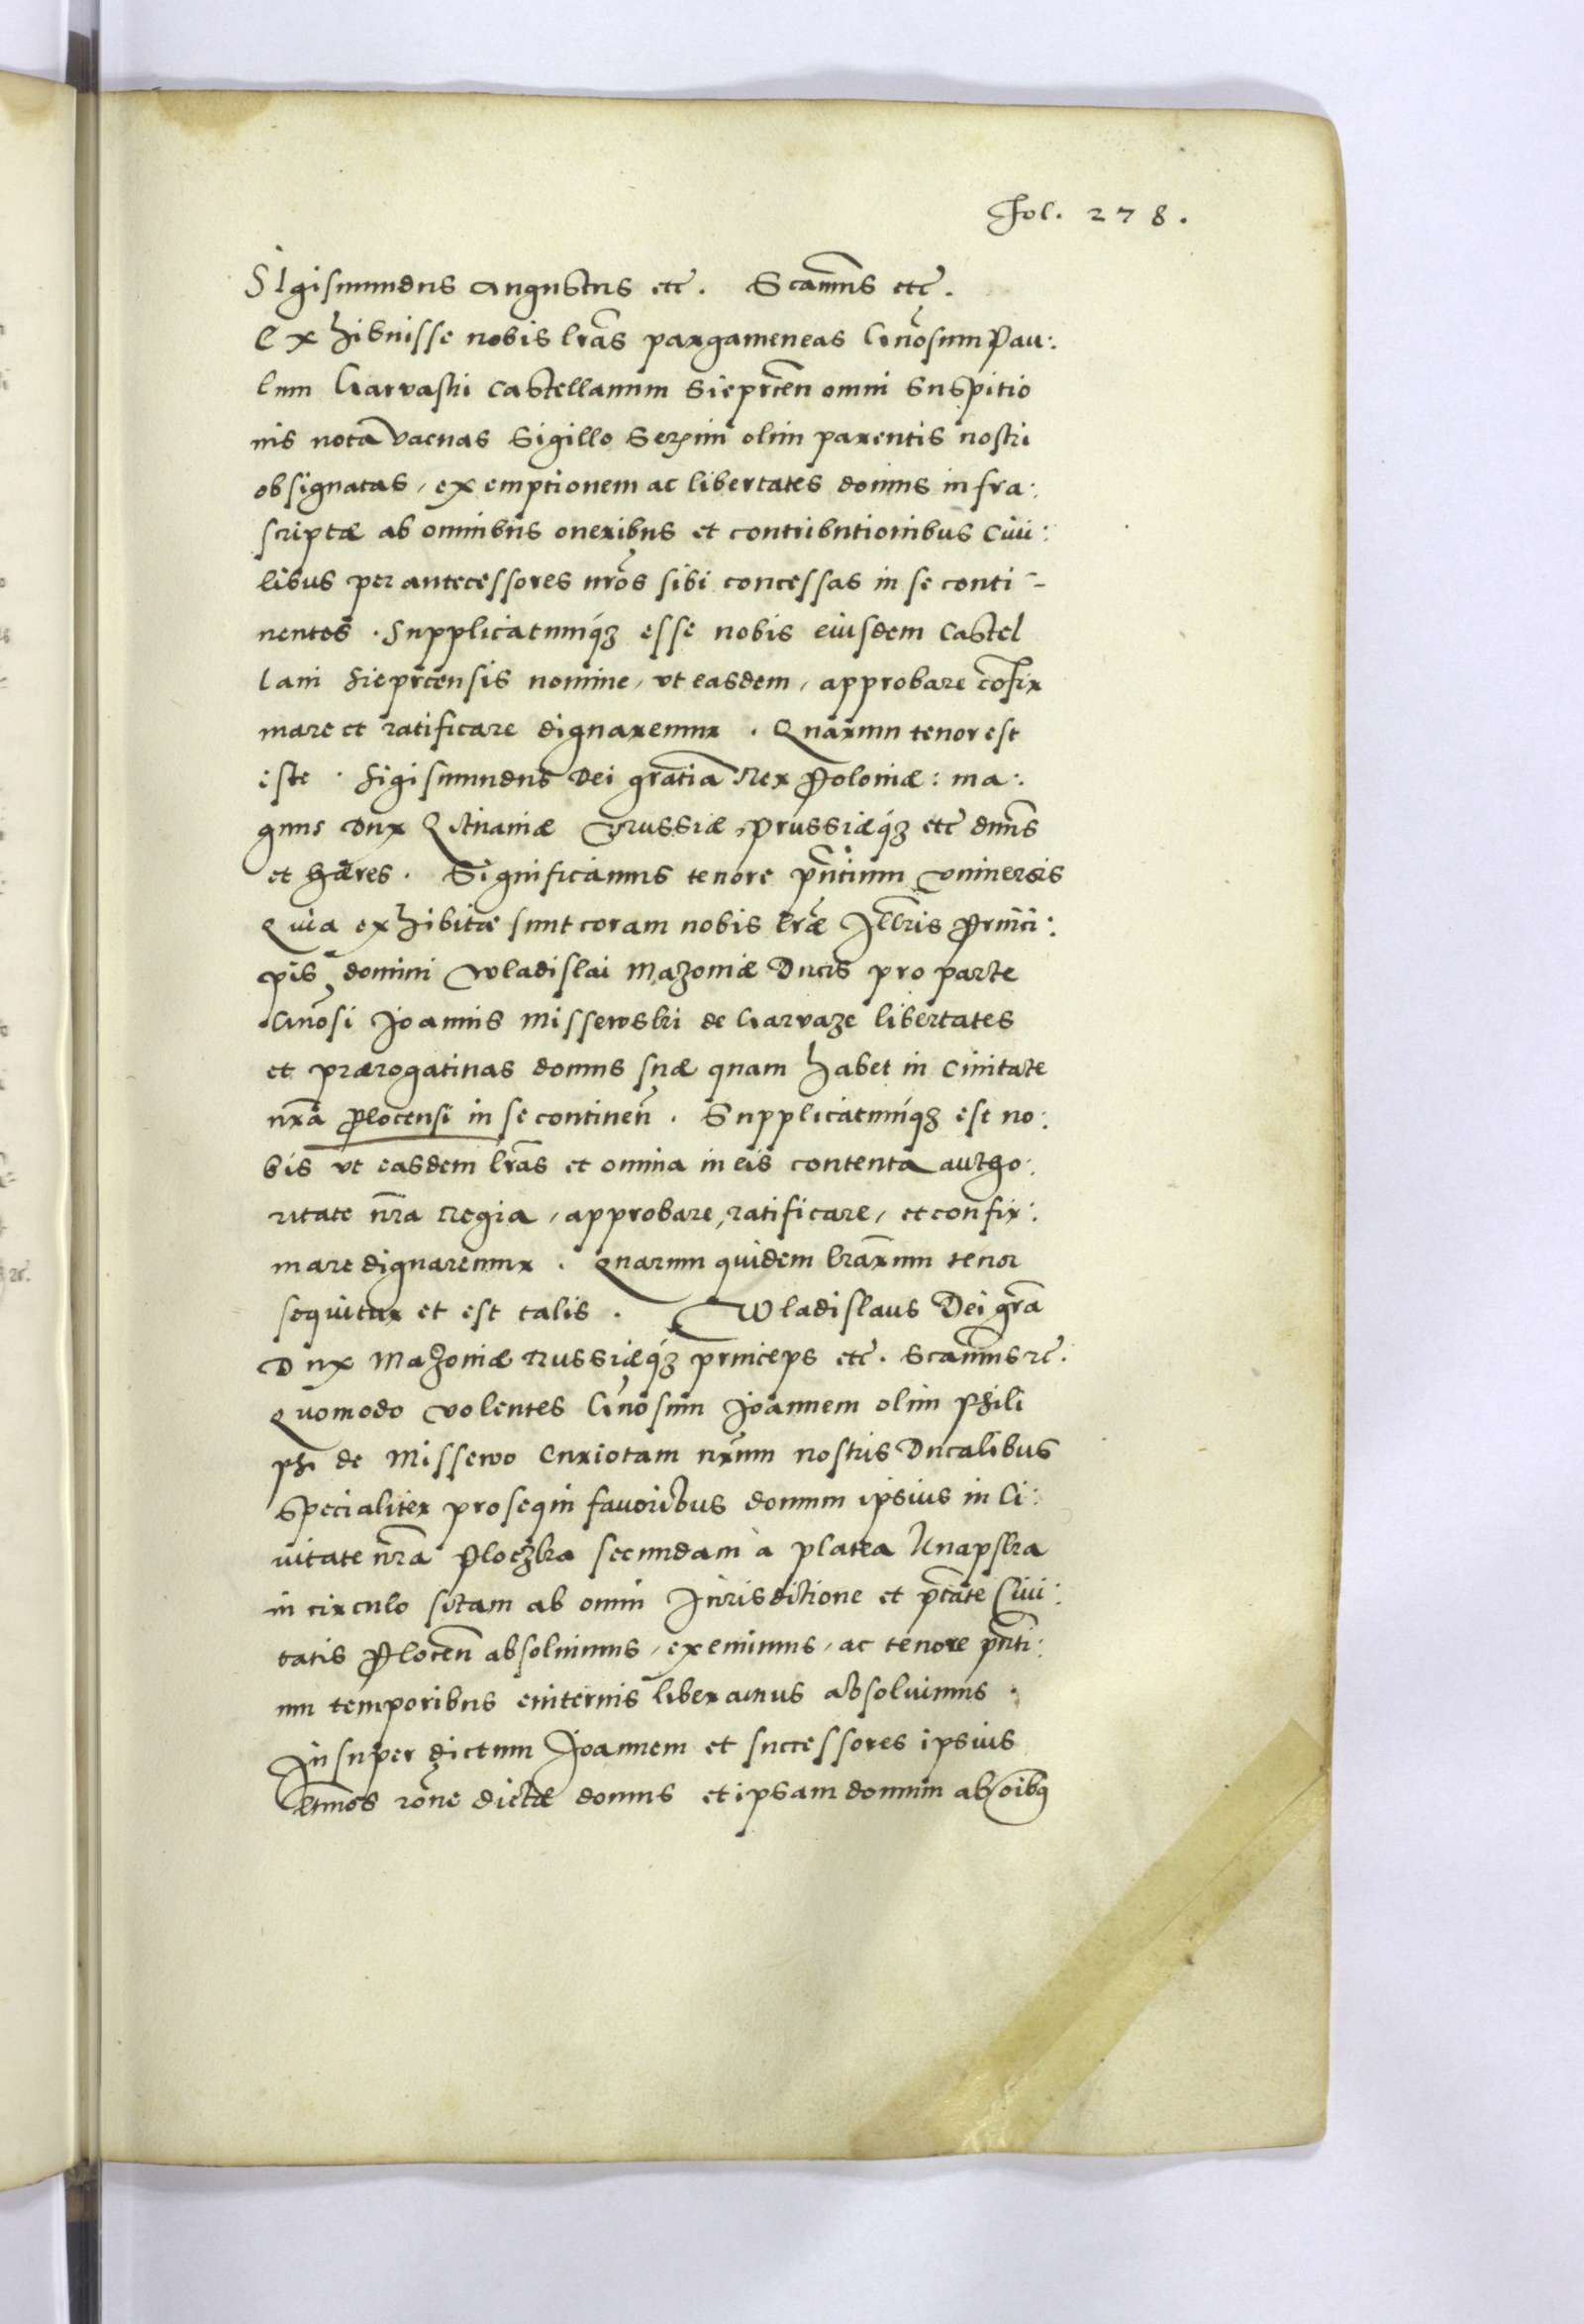 Fol. 278.
SIgismundus Augustus etc. Scamus etc.
Exhibuisse nobis lras pargameneas Gnosum Pau:
lum Garvaski Castellanum Sieprcen omni Suspitio
nis nota vacuas Sigillo Sermi olim parentis nostri
obsignatas, exemptionem ac libertates domus infra:
scriptæ ab omnibus oneribus et contributionibus Civi:
libus per antecessores nros sibi concessas in se conti-
nentes. Supplicatumq́ʒ esse nobis eiusdem Castel
lani sieprcensis nomine, ut easdem, approbare cofir
mare et ratificare dignaremur. Quarum tenor est
iste. Sigismundus Dei gratia Rex Poloniæ: ma:
gnus Dux Lituaniæ Russiæ, Prussiæq́ʒ etc dmns
et hæres. Significamus tenore pntium Vniversis
Quia exhibitæ sunt coram nobis lræ Jllris Princi:
pis domini Wladislai Mazoniæ Ducis pro parte
Gnosi Joannis Missewski de Garvaze libertates
et prærogativas domus suæ quam habet in Civitate
nra Plocensi in se continen. Supplicatumq́ʒ est no:
bis ut easdem lras et omnia in eis contenta autho:
ritate nra Regia, approbare, ratificare, et confir:
mare dignaremur. Quarum quidem lrarum tenor
sequitur et est talis. Wladislaus Dei gra
Dux Mazoniæ Russiæq́ʒ princeps etc. Scamus rc.
Quomodo volentes Gnosum Joannem olim Phili
phi de Missewo Curiotam nrum nostris Ducalibus
Specialiter prosequi favoribus domum ipsius in Ci:
vitate nra Ploczka secundam à platea Knapska
in circulo sitam ab omni Jurisditione et ptate Civi:
tatis Plocen absoluimus, exemimus, ac tenore pnti:
um temporibus eviternis liberamus absoluimus.
Jnsuper dictum Joannem et successores ipsius
ltimos rone dictæ domus et ipsam domum ab oibq